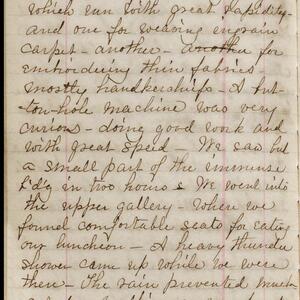 which run with great rapidity-
and one for weaving ingrain
carpet - another - another for
embroidering thin fabrics -
mostly handkerchiefs - A but-
ton-hole machine was very
curious - doing good work and
with great speed - We saw but
a small part of the immense
b'd'g in two hours & We went into
the upper gallery - where we
found comfortable seats for eating
our luncheon - A heavy thunder
shower came up while we were
there - The rain prevented much